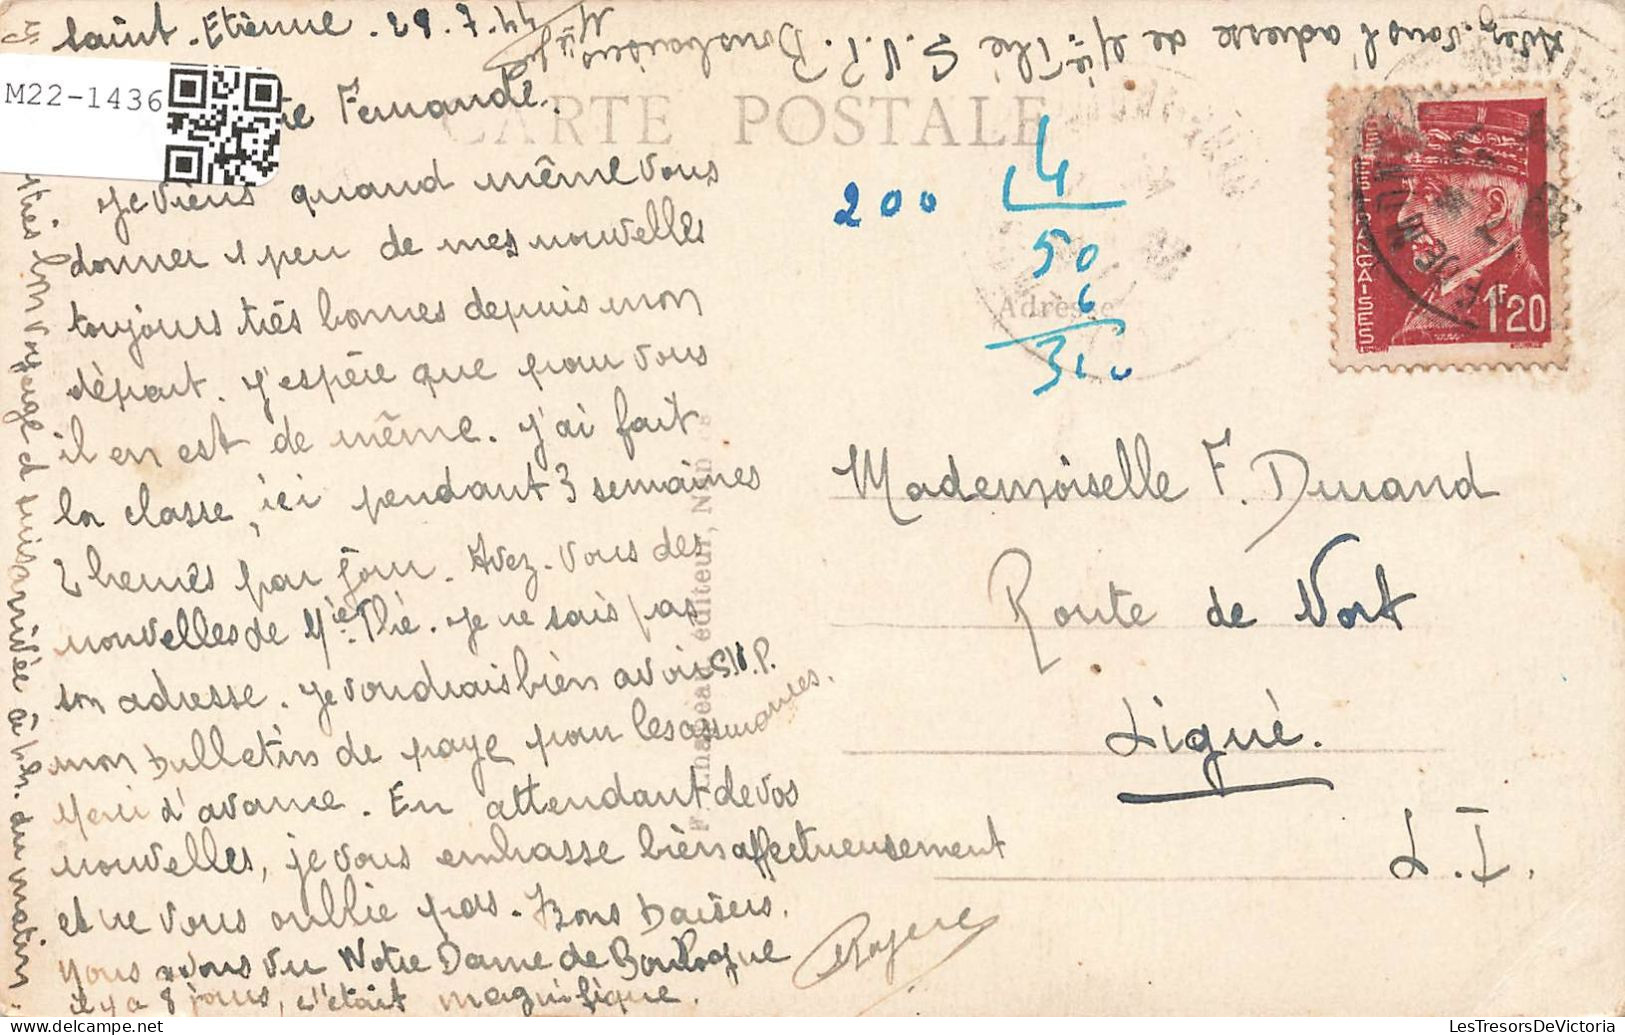 Saint-Etienne. 28.7.44
M22-1436
Fernande.
CARTE POSTALE
Je viens quand même vous
donner 1 peu de mes nouvelles
toujours très bonnes depuis mon
départ. J'espère que pour vous
il en est de même. J'ai fait
la classe, ici pendant 3 semaines
2 heures par jour. Avez-vous des
nouvelles de Mie Thé. Je ne sais pas
son adresse. Je voudrais bien avoir S.V.P.
mon bulletin de paye pour les assurances.
Merci d'avance. En attendant de vos
nouvelles, je vous embrasse bien affectueusement
et ne vous oublie pas. Bons baisers.
Nous avons vu Notre Dame de Boulogne
il y a 8 jours, c'était magnifique.
très bon voyage et suis arrivée à h. du matin.
Avez-vous l'adresse de Mie Thé S.V.P.
200
4
50
6
310
Adresse
F. Chapeau, éditeur, Nantes
POSTES FRANÇAISES
1F20
Mademoiselle F. Durand
Route de Vort
Ligné.
L.I.
LesTresorsDeVictoria